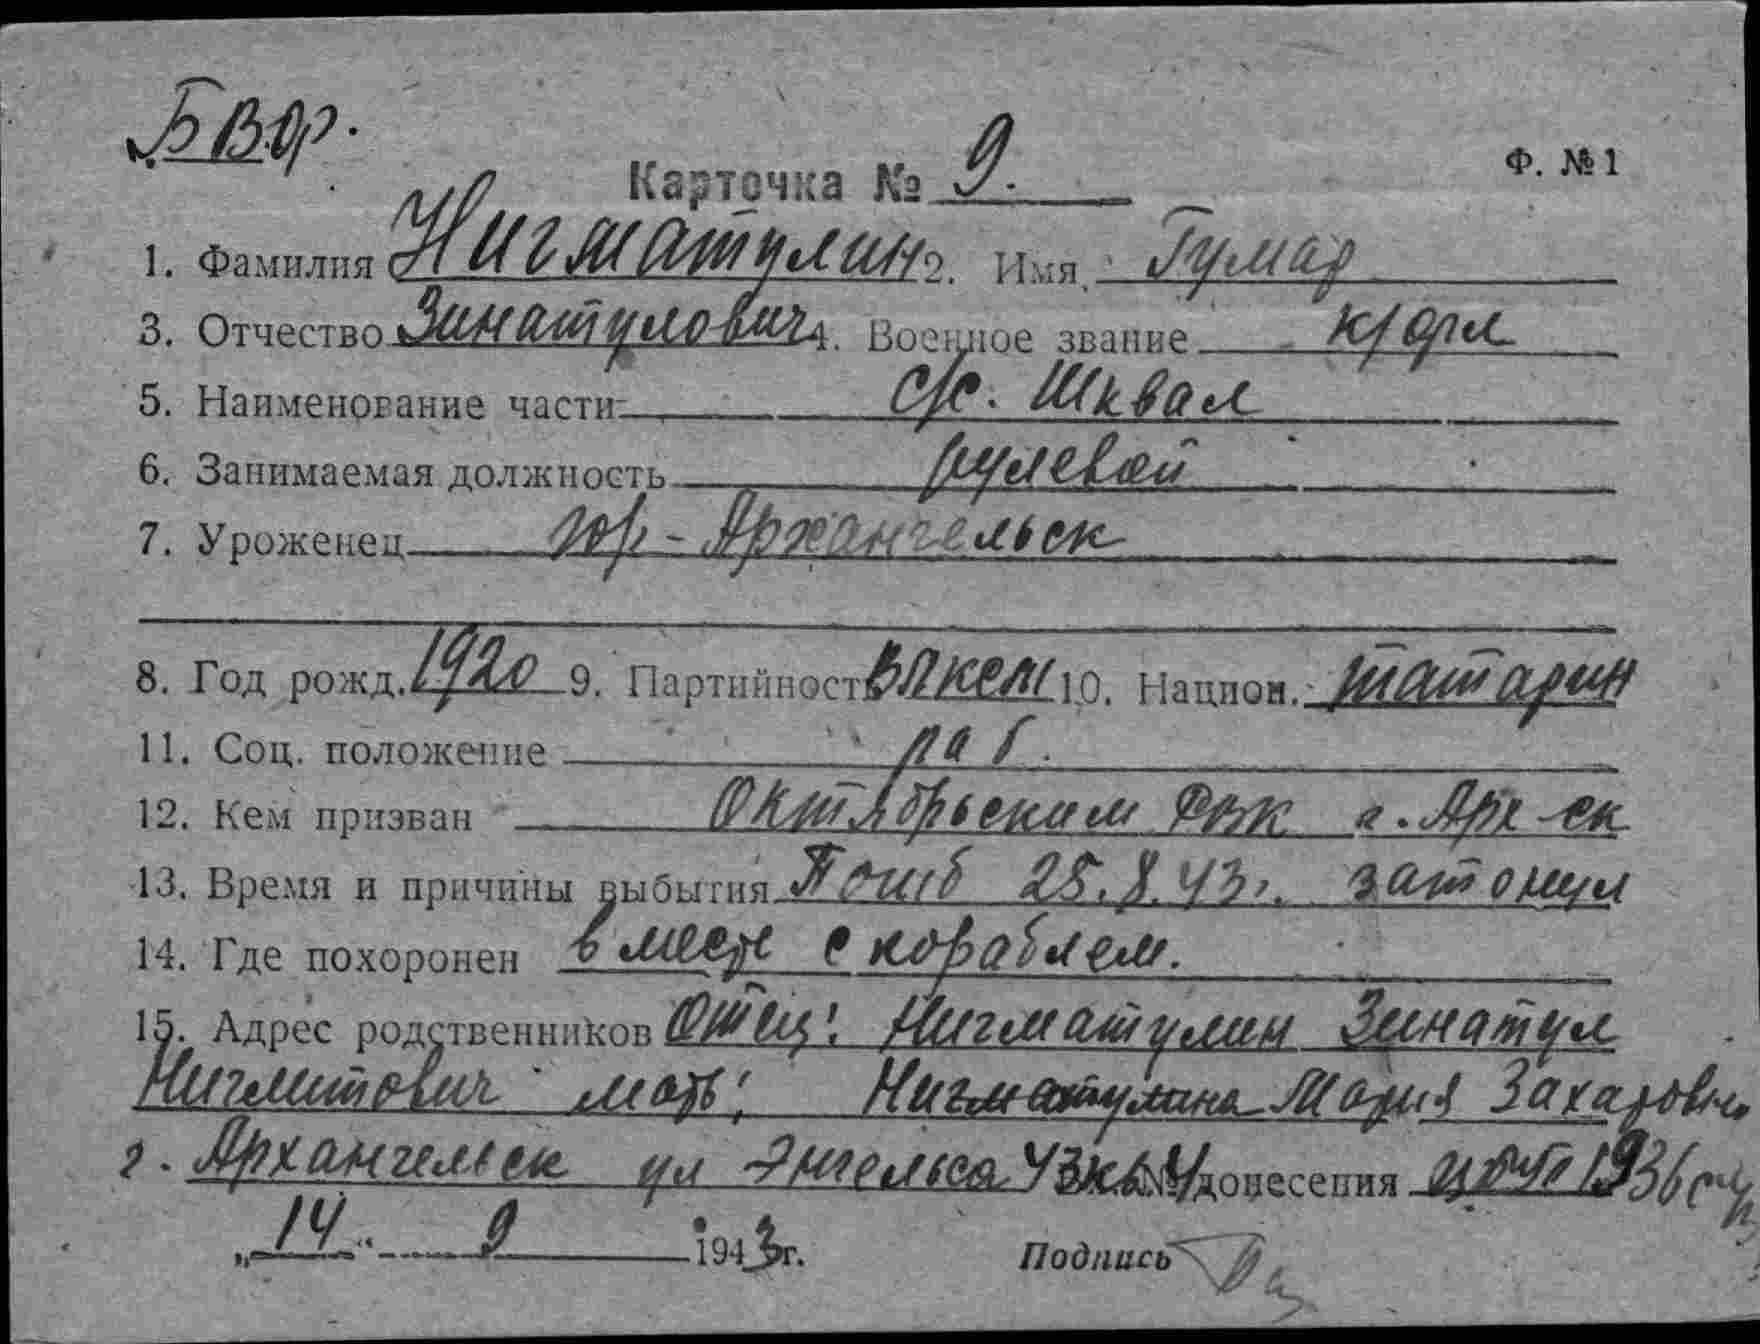 БВФ.
Карточка № 9.
Ф. № 1
1. Фамилия Нигматулин 2. Имя Гумар
3. Отчество Зинатулович 4. Военное звание к/фл
5. Наименование части с/с. Шквал
6. Занимаемая должность рулевой
7. Уроженец гор - Архангельск
8. Год рожд. 1920 9. Партийность ВЛКСМ 10. Национ. татарин
11. Соц. положение раб.
12. Кем призван Октябрьским РВК г. Арх-ск
13. Время и причины выбытия Погиб 25.8.43г. затонул
14. Где похоронен вместе с кораблем.
15. Адрес родственников Отец: Нигматулин Зинатул
Нигмитович мать: Нигматулина Мария Захаровн.
г. Архангельск ул Энгельса донесения 1936
„14" 9 1943г. Подпись